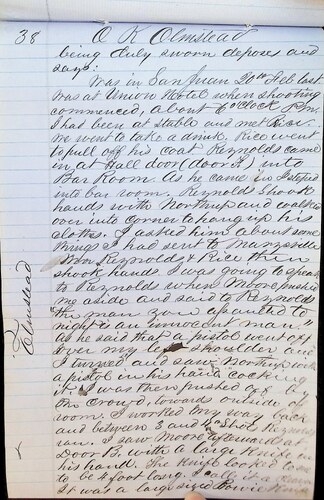 38 O K Olmstead
being duly sworn deposes and
says:
Was in San Juan 20th Feb last
was at Union Hotel when shooting
commenced, about 6 oclock P.M.
I had been at Stable and met Rice
We went to take a drink. Rice went
to pull off his coat Reynolds came
in at Hall door (door D) into
Bar Room As he came in I stepped
into bar room. Reynolds shook
hands with Northup and walked
over into corner to hang up his
clothes. I asked him about some
things I had sent to Manzanita
Mr Reynolds & Rice then
shook hands. I was going to speak
to Reynolds when Moore pushed
me aside and said to Reynolds
"the man you assaulted to
night is an innocent man."
As he said that a pistol went off
over my left shoulder and
I turned and saw Northup with
a pistol in his hand cocking
it. I was then pushed by
the crowd, toward outside of
room. I worked my way back
and between 3 and 4th shot Reynolds
ran. I saw Moore afterward at
Door B. with a large Knife in
his hand. The Knife looked to me
to be 4 foot long. is a
It was a large sized Bowie Knife
Olmstead